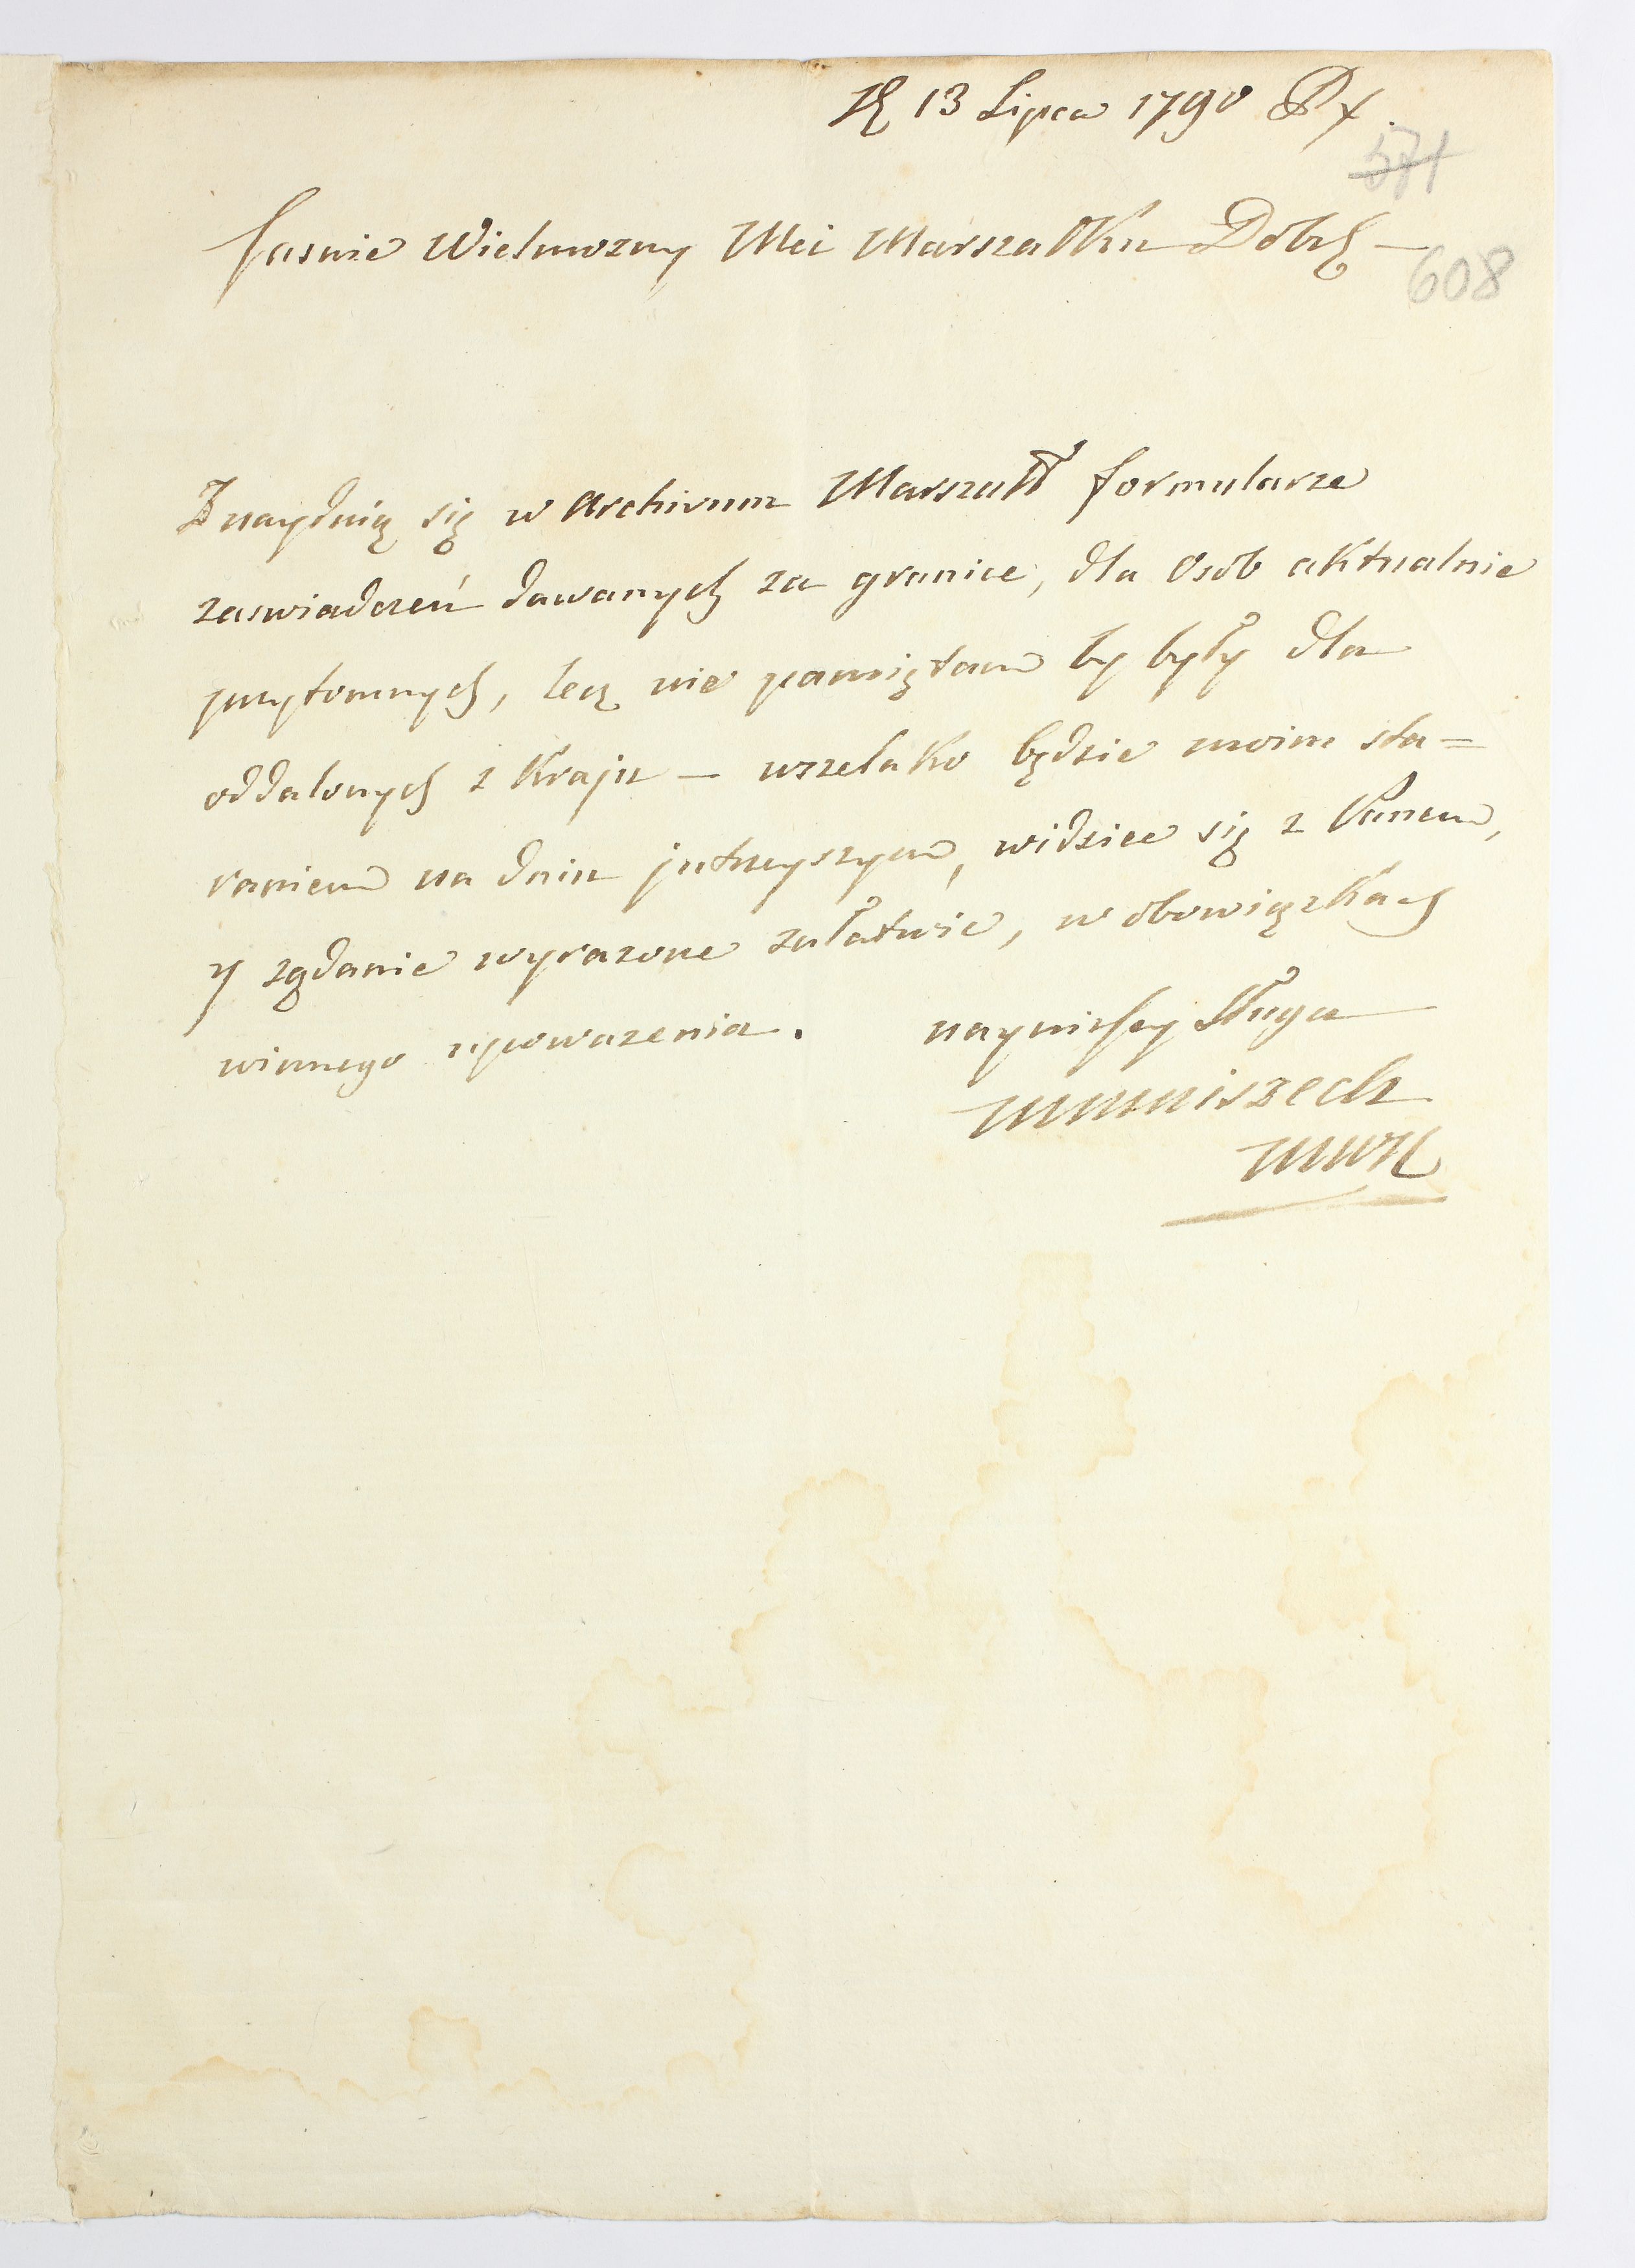 13 Lipca 1790
571
Jasnie Wielmozny Mci Marszałku Dobr
608
Znayduią się w Archivum Marszałł formularze
zaswiadczeń dawanych za granice, dla Osób aktualnie
przytomnych, lecz nie pamiętam by były dla
oddalonych z Kraju — wszelako będzie moim sta=
raniem na dniu jutrzeyszym, widziec się z Panem,
y żądanie wyrazone załatwic, w obowiązkach
winnego upowazenia.
nayniższy Sługa
MMniszech
MWK